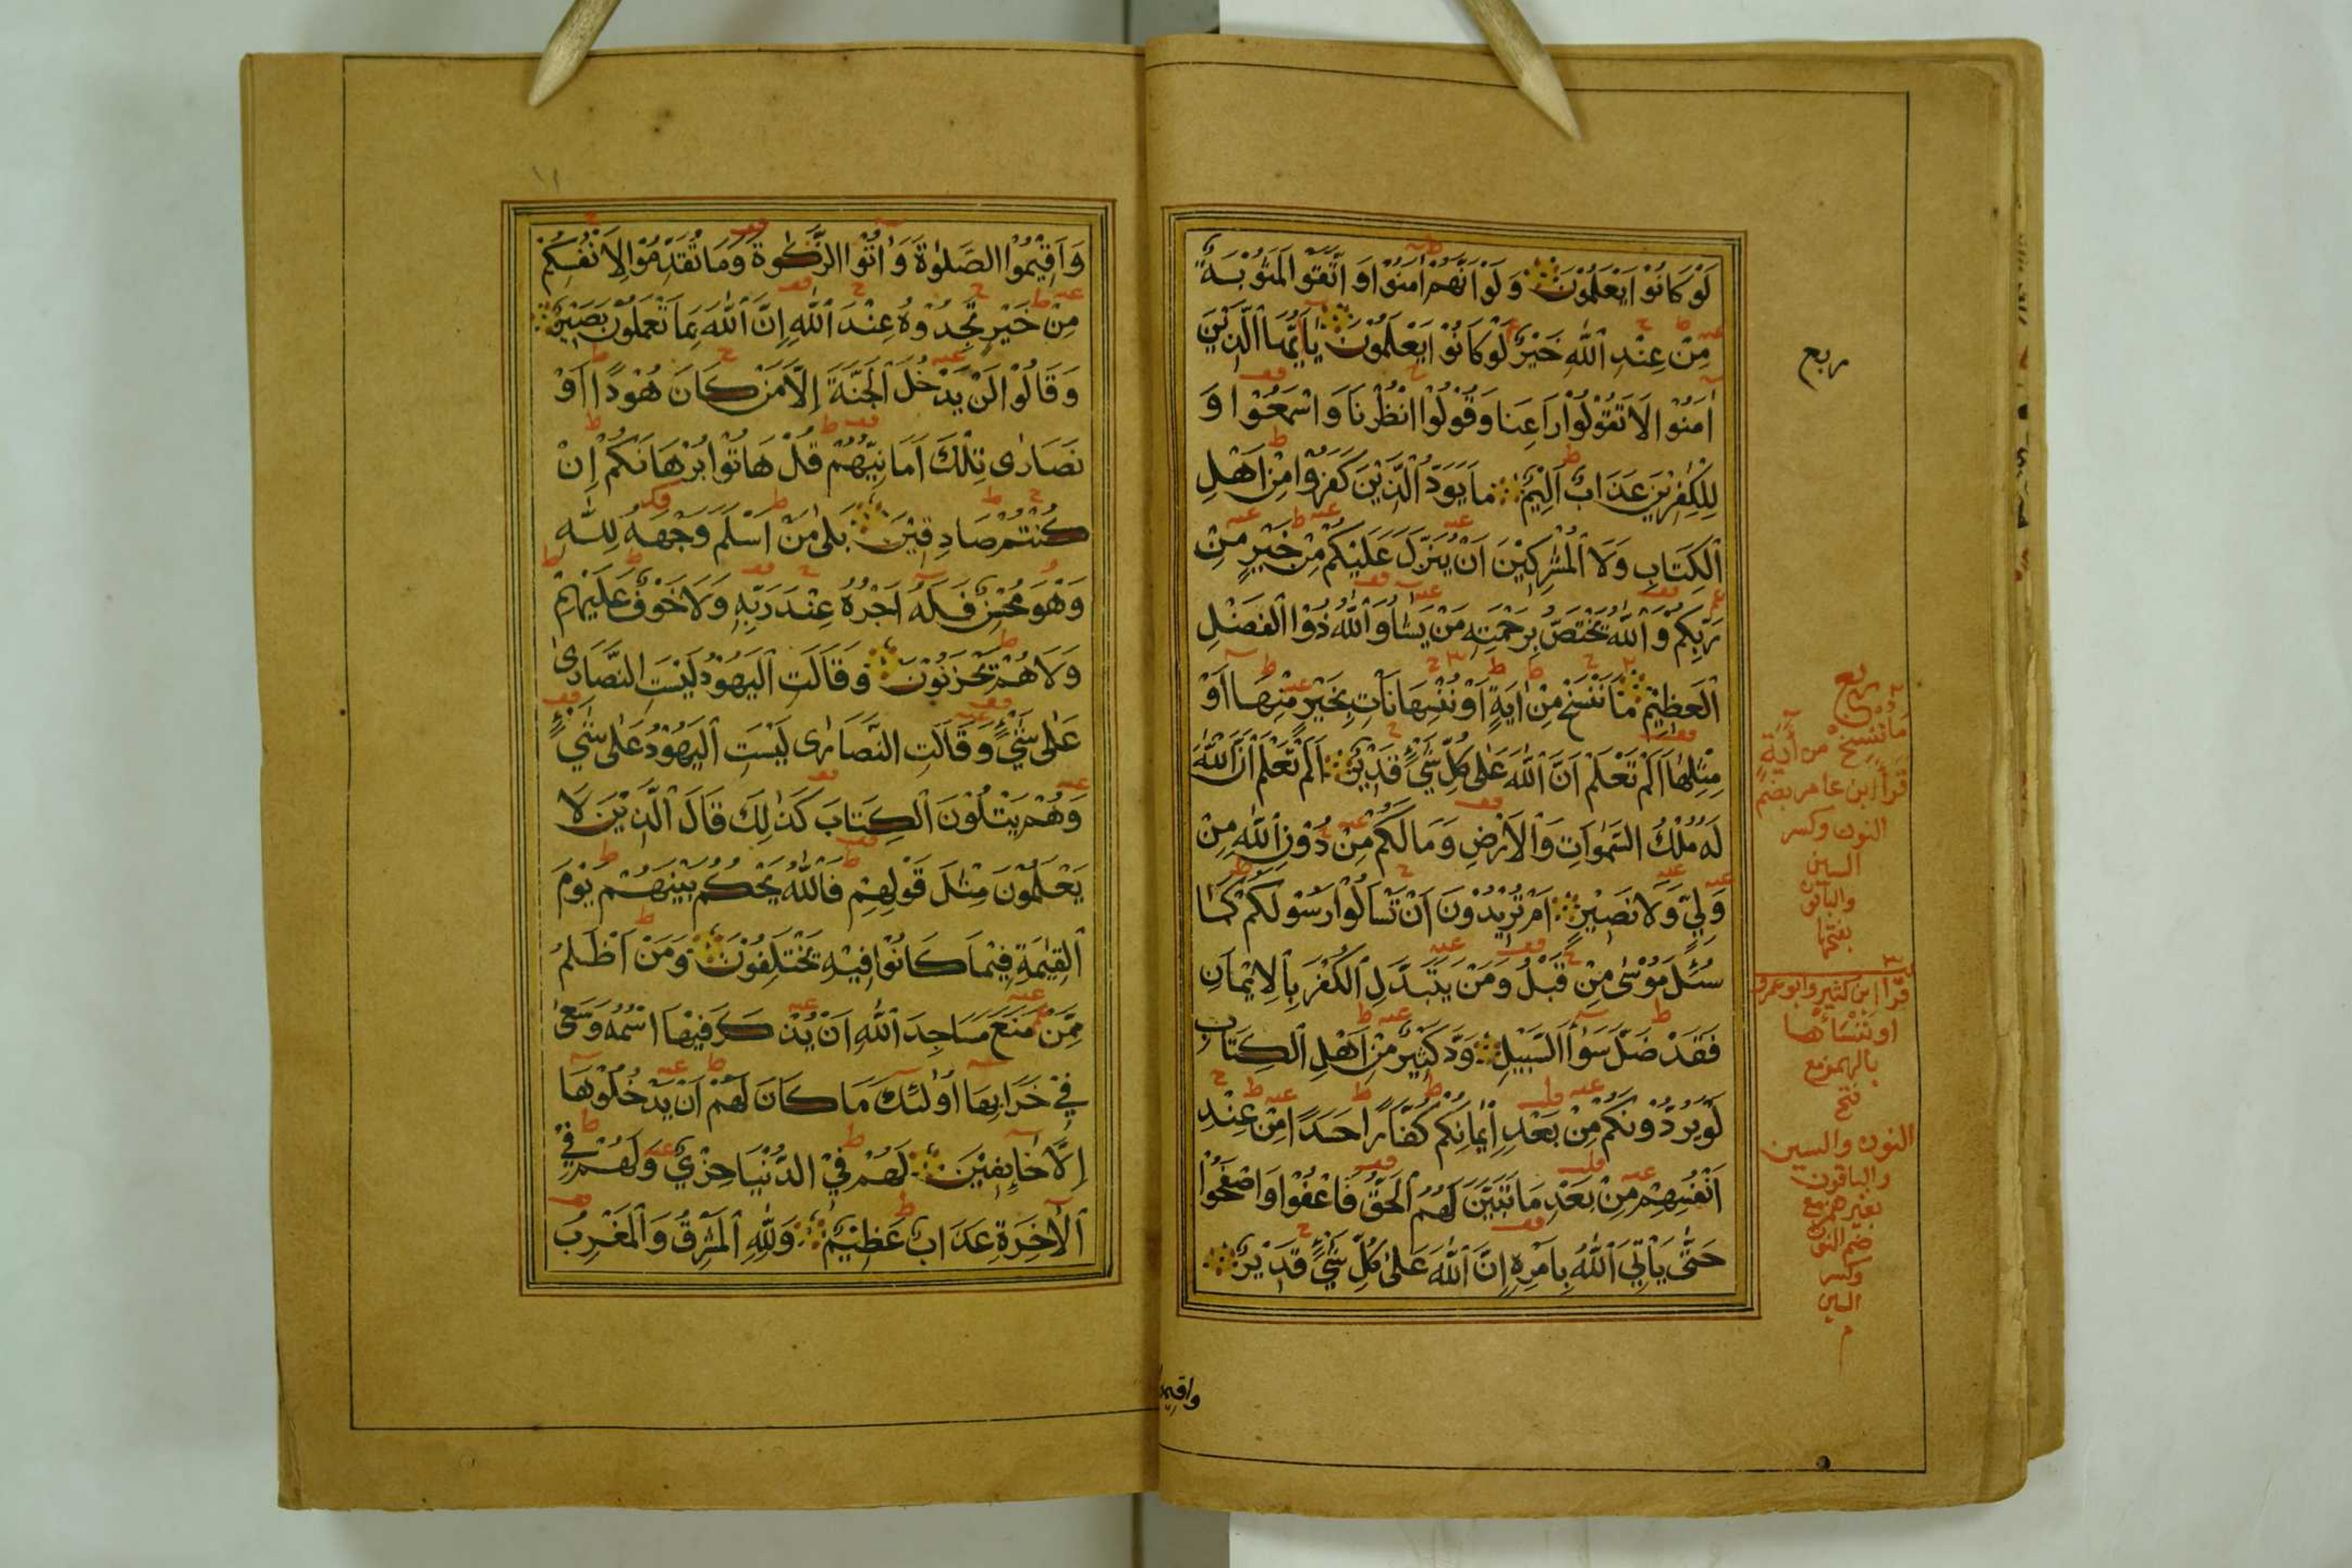 لَوْ كَانُوْا يَعْلَمُوْنَ وَلَوْ اَنَّهُمْ اٰمَنُوْا وَ اتَّقَوْا لَمَثُوْبَةٌ
مِنْ عِنْدِ اللّٰهِ خَيْرٌ لَوْ كَانُوْا يَعْلَمُوْنَ يٰاَيُّهَا الَّذِيْنَ
اٰمَنُوْا لَا تَقُوْلُوْا رَاعِنَا وَقُوْلُوا انْظُرْنَا وَاسْمَعُوْا وَ
لِلْكٰفِرِيْنَ عَذَابٌ اَلِيْمٌ مَا يَوَدُّ الَّذِيْنَ كَفَرُوْا مِنْ اَهْلِ
الْكِتَابِ وَلَا الْمُشْرِكِيْنَ اَنْ يُنَزَّلَ عَلَيْكُمْ مِنْ خَيْرٍ مِنْ
رَبِّكُمْ وَاللّٰهُ يَخْتَصُّ بِرَحْمَتِهٖ مَنْ يَشَاءُ وَاللّٰهُ ذُوا الْفَضْلِ
الْعَظِيْمِ مَا نَنْسَخْ مِنْ اٰيَةٍ اَوْ نُنْسِهَا نَأْتِ بِخَيْرٍ مِنْهَا اَوْ
مِثْلِهَا اَلَمْ تَعْلَمْ اَنَّ اللّٰهَ عَلٰى كُلِّ شَيْءٍ قَدِيْرٌ اَلَمْ تَعْلَمْ اَنَّ اللّٰهَ
لَهُ مُلْكُ السَّمٰوَاتِ وَالْاَرْضِ وَمَا لَكُمْ مِنْ دُوْنِ اللّٰهِ مِنْ
وَلِيٍّ وَلَا نَصِيْرٍ اَمْ تُرِيْدُوْنَ اَنْ تَسْاَلُوْا رَسُوْلَكُمْ كَمَا
سُئِلَ مُوْسٰى مِنْ قَبْلُ وَمَنْ يَتَبَدَّلِ الْكُفْرَ بِالْاِيْمَانِ
فَقَدْ ضَلَّ سَوَاءَ السَّبِيْلِ وَدَّ كَثِيْرٌ مِنْ اَهْلِ الْكِتَابِ
لَوْ يَرُدُّوْنَكُمْ مِنْ بَعْدِ اِيْمَانِكُمْ كُفَّارًا حَسَدًا مِنْ عِنْدِ
اَنْفُسِهِمْ مِنْ بَعْدِ مَا تَبَيَّنَ لَهُمُ الْحَقُّ فَاعْفُوْا وَاصْفَحُوْا
حَتّٰى يَأْتِيَ اللّٰهُ بِاَمْرِهٖ اِنَّ اللّٰهَ عَلٰى كُلِّ شَيْءٍ قَدِيْرٌ
واقيموا
ربع
ربع
مَا نَنْسَخْ من آيَةٍ
قرأ ابن عامر بضم
النون وكسر
السين
والباقون
بفتحها
قرأ ابن كثير وابو عمرو
او نَنْسَأْها
بالهمز مع
فتح
النون والسين
والباقون
بغير همز مع
ضم النون
وكسر
السين
م
١١
وَاَقِيْمُوا الصَّلٰوةَ وَ اٰتُوا الزَّكٰوةَ وَمَا تُقَدِّمُوْا لِاَنْفُسِكُمْ
مِنْ خَيْرٍ تَجِدُوْهُ عِنْدَ اللّٰهِ اِنَّ اللّٰهَ بِمَا تَعْمَلُوْنَ بَصِيْرٌ
وَقَالُوْا لَنْ يَدْخُلَ الْجَنَّةَ اِلَّا مَنْ كَانَ هُوْدًا اَوْ
نَصَارٰى تِلْكَ اَمَانِيُّهُمْ قُلْ هَاتُوْا بُرْهَانَكُمْ اِنْ
كُنْتُمْ صَادِقِيْنَ بَلٰى مَنْ اَسْلَمَ وَجْهَهُ لِلّٰهِ
وَهُوَ مُحْسِنٌ فَلَهُ اَجْرُهُ عِنْدَ رَبِّهٖ وَلَا خَوْفٌ عَلَيْهِمْ
وَلَا هُمْ يَحْزَنُوْنَ وَقَالَتِ الْيَهُوْدُ لَيْسَتِ النَّصَارٰى
عَلٰى شَيْءٍ وَقَالَتِ النَّصَارٰى لَيْسَتِ الْيَهُوْدُ عَلٰى شَيْءٍ
وَهُمْ يَتْلُوْنَ الْكِتَابَ كَذٰلِكَ قَالَ الَّذِيْنَ لَا
يَعْلَمُوْنَ مِثْلَ قَوْلِهِمْ فَاللّٰهُ يَحْكُمُ بَيْنَهُمْ يَوْمَ
الْقِيٰمَةِ فِيْمَا كَانُوْا فِيْهِ يَخْتَلِفُوْنَ وَمَنْ اَظْلَمُ
مِمَّنْ مَنَعَ مَسَاجِدَ اللّٰهِ اَنْ يُذْكَرَ فِيْهَا اسْمُهُ وَسَعٰى
فِيْ خَرَابِهَا اُولٰئِكَ مَا كَانَ لَهُمْ اَنْ يَدْخُلُوْهَا
اِلَّا خَائِفِيْنَ لَهُمْ فِي الدُّنْيَا خِزْيٌ وَلَهُمْ فِي
الْاٰخِرَةِ عَذَابٌ عَظِيْمٌ وَلِلّٰهِ الْمَشْرِقُ وَالْمَغْرِبُ